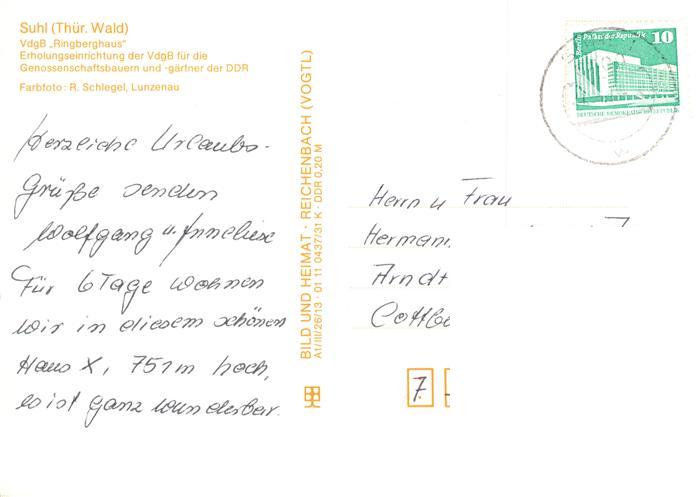 Suhl (Thür. Wald)
VdgB „Ringberghaus"
Erholungseinrichtung der VdgB für die
Genossenschaftsbauern und -gärtner der DDR
Farbfoto: R. Schlegel, Lunzenau
Herzliche Urlaubs-
Grüße senden
Wolfgang u. Anneliese
Für 6 Tage wohnen
wir in diesem schönen
Haus X, 751m hoch,
es ist ganz wunderbar.
BILD UND HEIMAT · REICHENBACH (VOGTL)
A1/III/26/13 · 01 11 0437/31 K · DDR 0,20 M
Berlin Palast der Republik 10
DEUTSCHE DEMOKRATISCHE REPUBLIK
Herrn u Frau
Hermann
Arndt
Cottb
7